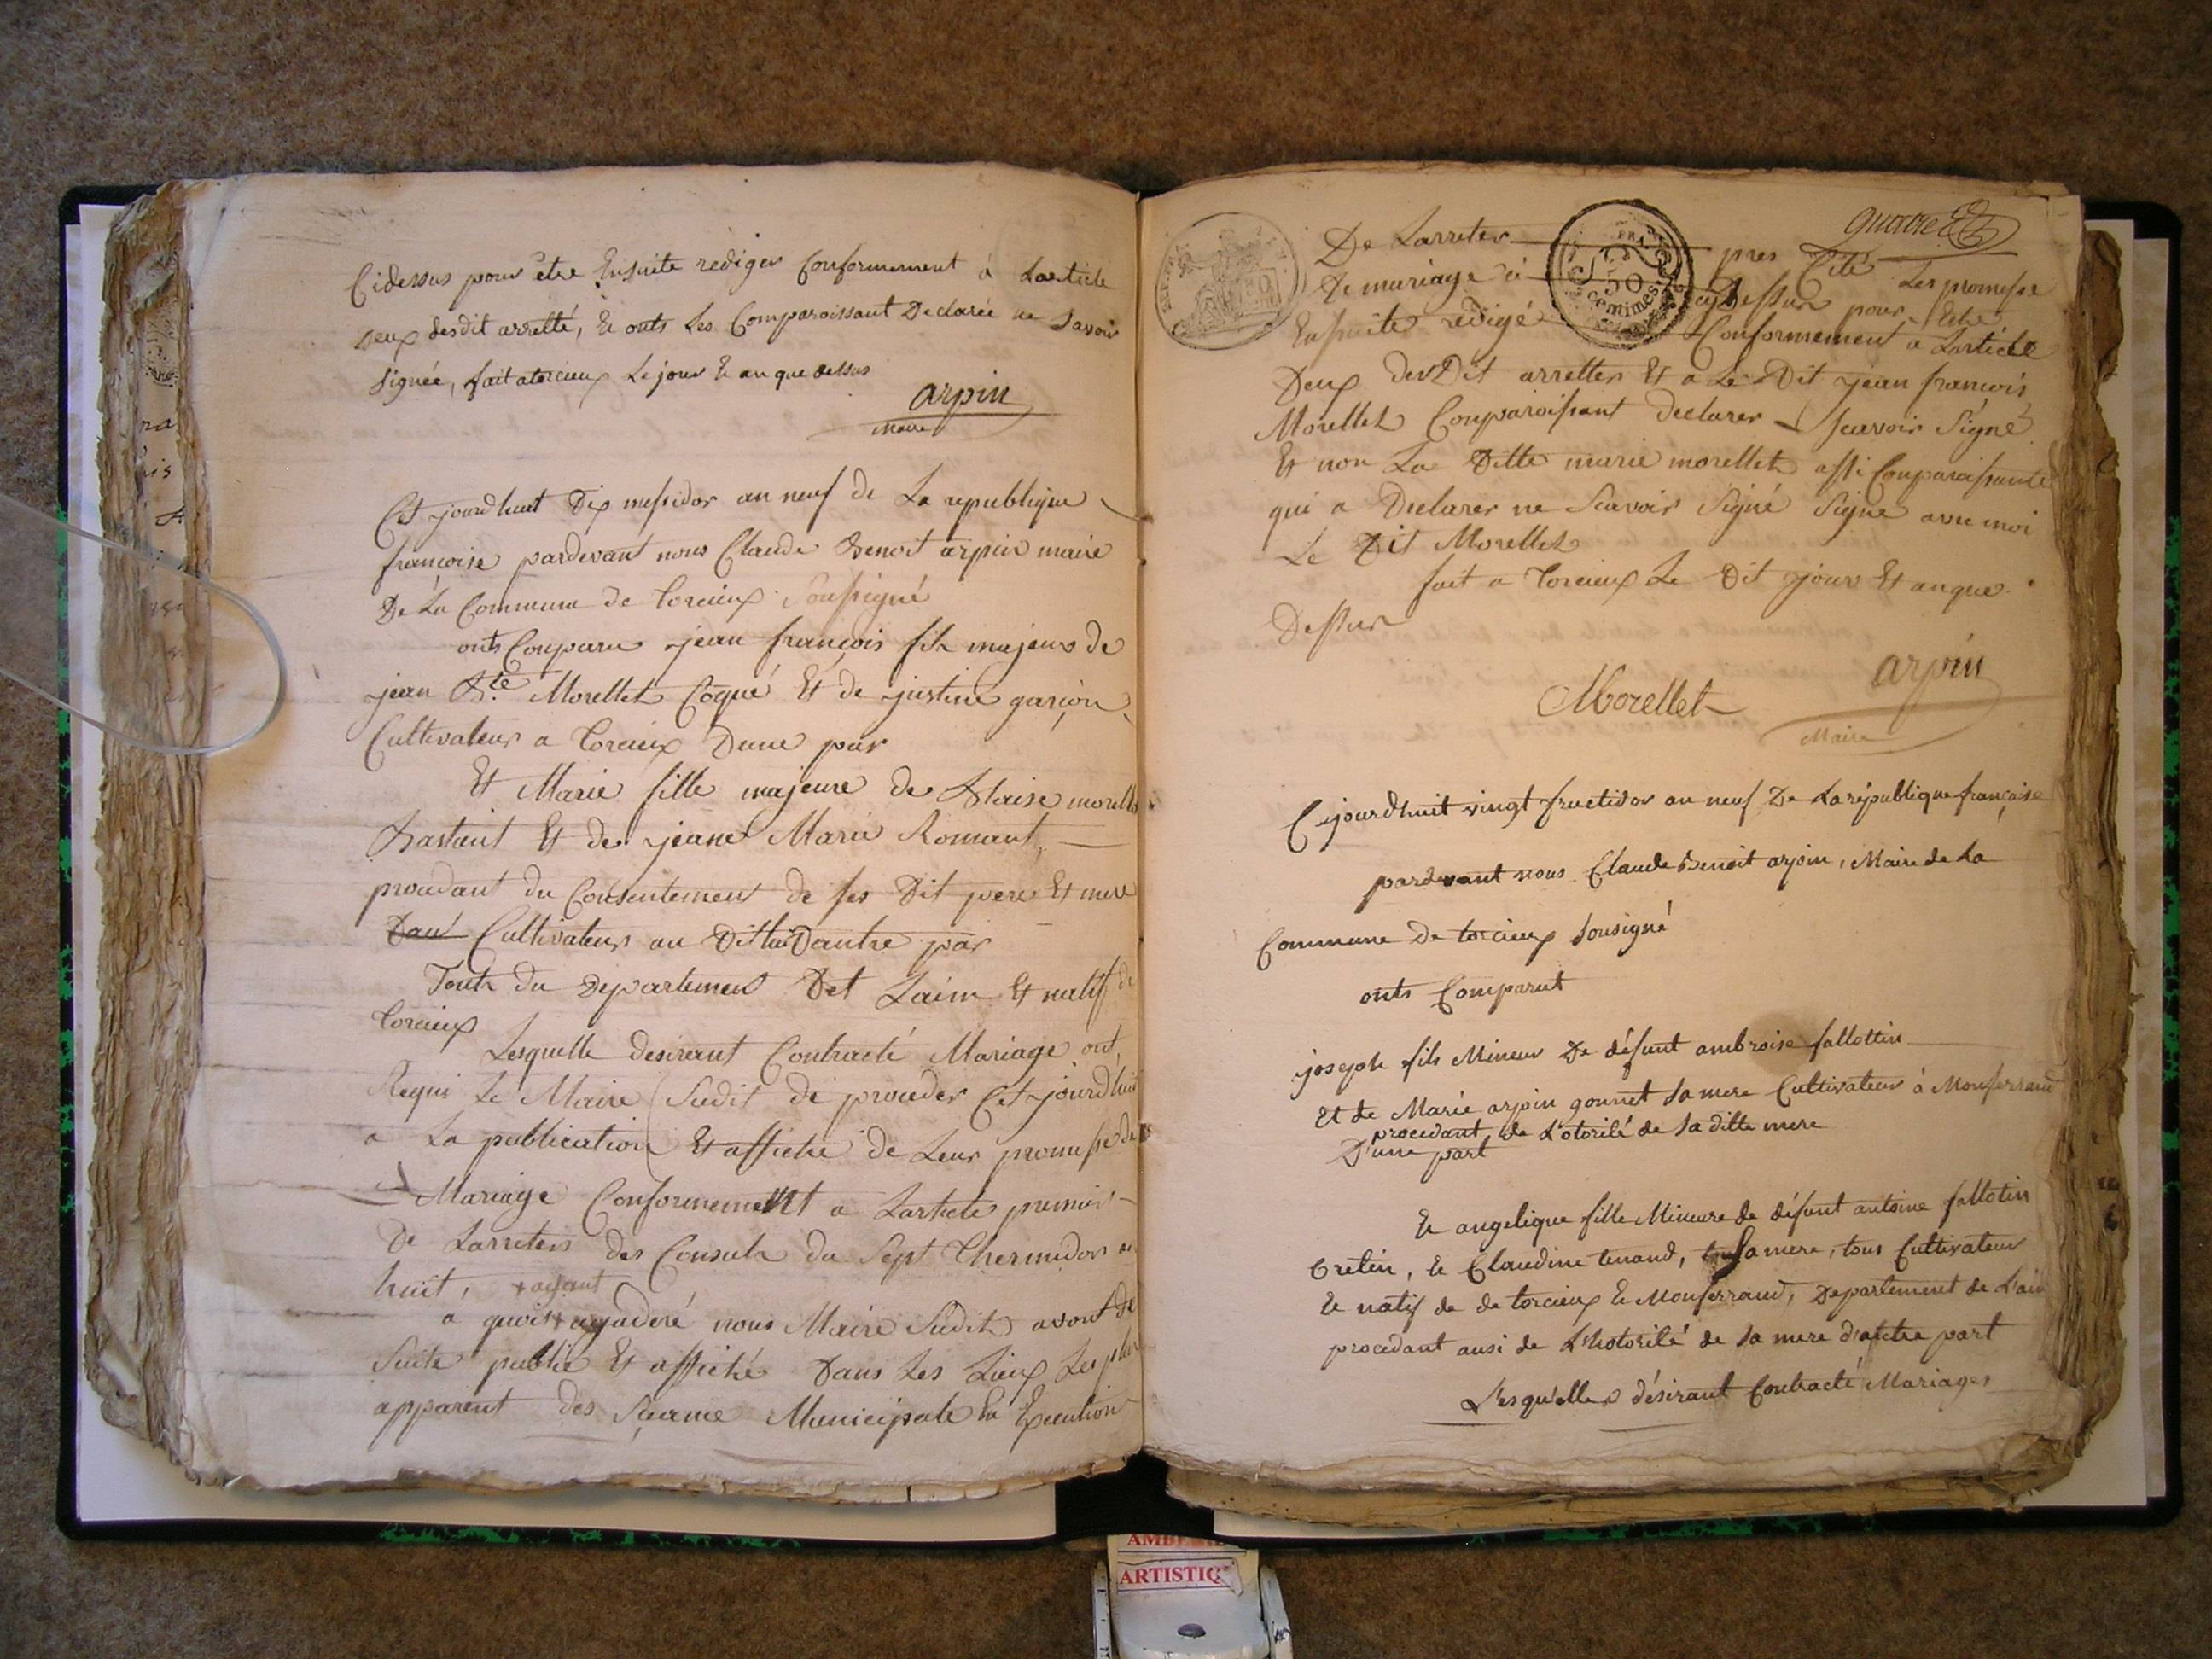 Cidessus pour etre Ensuite rediger Conformement à Larticle
Deux desdit arretté, Et onts Les Comparoissant Declarée ne Savoir
Signée, fait atorcieux Le jour Et an que dessus
arpin
Maire
Cet jourdhuit Dix messidor an neuf de La republique
françoise pardevant nous Claude Benoit arpin maire
De La Commune de Torcieux Soussigné
onts Comparu jean françois fils majeur de
jean Bte Morellet Coqué Et de justine garçon
Cultivateur a Torcieux Dune par
Et Marie fille majeure de Blaise morellet
Bastant Et de jeane Marie Romant
procedant du Consentement de ses Dit pere Et mere
Daut Cultivateur au Dit lui Dautre par
Touts du Departement Det Laim Et natif de
Torcieux
Lesquelle desireant Contracté Mariage ont
Requi Le Maire Sudit de proceder Cet jourdhuit
a La publication Et affiche de Leur promesse de
Mariage Conformement a Larticle premier
De Larreters des Consuls du Sept Thermidor an
huit, + ayant
a quoi + ayaderé nous Maire Sudit avont de
Suite publié Et affiché Dans Les Lieux Les plus
apparent des Séance Municipale En Execution
quatre
De Larreter pres Cité Les promesse
De mariage ci cy Dessus pour Etre
Ensuite redigé Conformement a Larticle
Deux desDit arretter Et a Le Dit jean françois
Morellet Comparoissant declarer scavoir Signé
Et non La Ditte marie morellet assi Comparoissante
qui a Declarer ne Scavoir Signé Signe avec moi
Le Dit Morellet
fait a Torcieux Le Dit jour Et an que
Dessus
Morellet
arpin
Maire
50
centimes
Cejourdhuit vingt fructidor an neuf De La république française
pardevant nous Claude Benoit arpin, Maire de La
Commune De torcieux Sousigné
onts Comparut
joseph fils Mineur De défunt ambroise fallottin
Et de Marie arpin gonnet Sa mere Cultivateur à Monferrand
procedant de L'otorité de Sa ditte mere
D'une part
Et angelique fille Mineure de défunt antoine fallotin
Cretin, Et Claudine tenand, Sa mere, tous Cultivateur
Et natif de de torcieux Et Monferrand, Departement de L'ain
procedant ausi de L'hotorité de Sa mere d'autre part
L'esquelles désirant Contracté Mariages
AMBERIE
ARTISTIQ